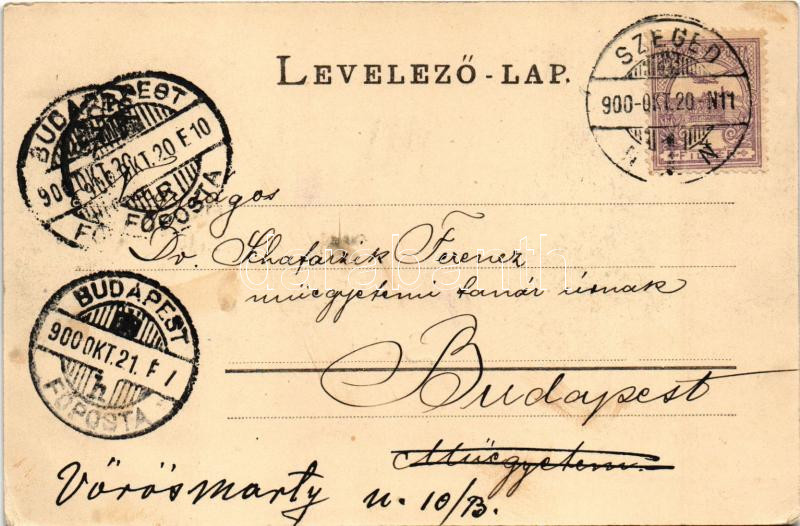 LEVELEZŐ-LAP.
SZEGED
900-OKT.20-N11
N N
FILLÉR
BUDAPEST
900 OKT.20 F 10
FŐPOSTA
Dr. Schafarzik Ferencz
műegyetemi tanár úrnak
Budapest
Műegyetem
BUDAPEST
900 OKT.21. F 1
FŐPOSTA
Vörösmarty u. 10/B.
darabanth